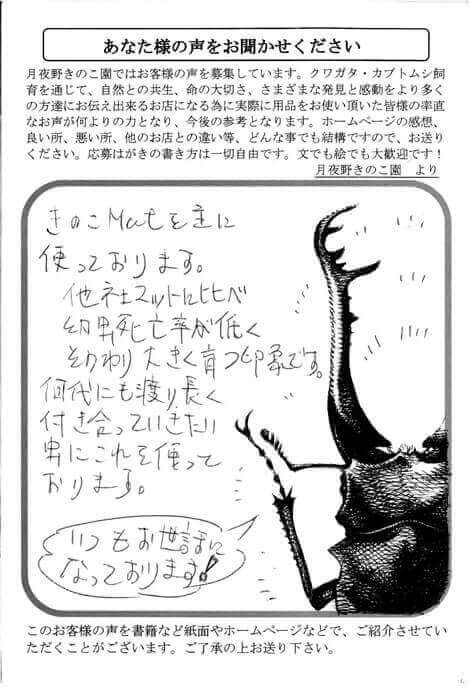 あなた様の声をお聞かせください
月夜野きのこ園ではお客様の声を募集しています。クワガタ・カブトムシ飼
育を通じて、自然との共生、命の大切さ、さまざまな発見と感動をより多く
の方達にお伝え出来るお店になる為に実際に用品をお使い頂いた皆様の率直
なお声が何よりの力となり、今後の参考となります。ホームページの感想、
良い所、悪い所、他のお店との違い等、どんな事でも結構ですので、お送り
ください。応募はがきの書き方は一切自由です。文でも絵でも大歓迎です！
月夜野きのこ園　より
きのこMatを主に
使っております。
他社マットに比べ
幼虫死亡率が低く
そのわり大きく育つ印象です。
何代にも渡り長く
付き合っていきたい
虫にこれを使って
おります。
いつもお世話に
なっております！
このお客様の声を書籍など紙面やホームページなどで、ご紹介させてい
ただくことがございます。ご了承の上お送り下さい。